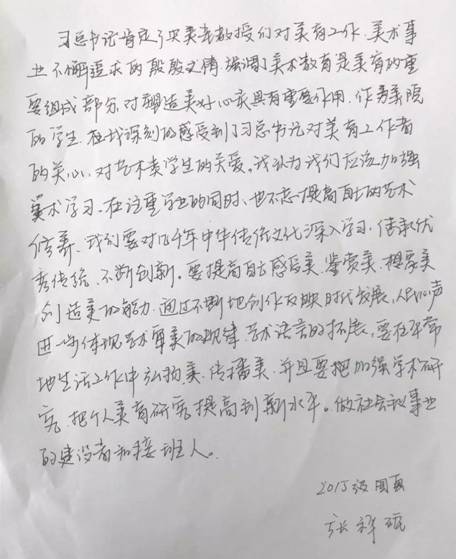 习总书记肯定了央美老教授们对美育工作、美术事
业不懈追求的殷殷之情,强调了美术教育是美育的重
要组成部分,对塑造美好心灵具有重要作用。作为美院
的学生,在我深刻的感受到了习总书记对美育工作者
的关心、对艺术类学生的关爱。我认为我们应该加强
美术学习。在注重学业的同时、也不忘提高自己的艺术
修养。我们要对几千年中华传统文化深入学习、传承优
秀传统、不断创新。要提高自己感受美、鉴赏美、想象美
创造美的能力。通过不断地创作反映时代发展、人民心声
进一步体现艺术审美的规律、艺术语言的拓展,要在平常
地生活工作中弘扬美、传播美,并且要把加强学术研
究,把个人美育研究提高到新水平。做社会主义事业
的建设者和接班人。
2015级国画
张祥